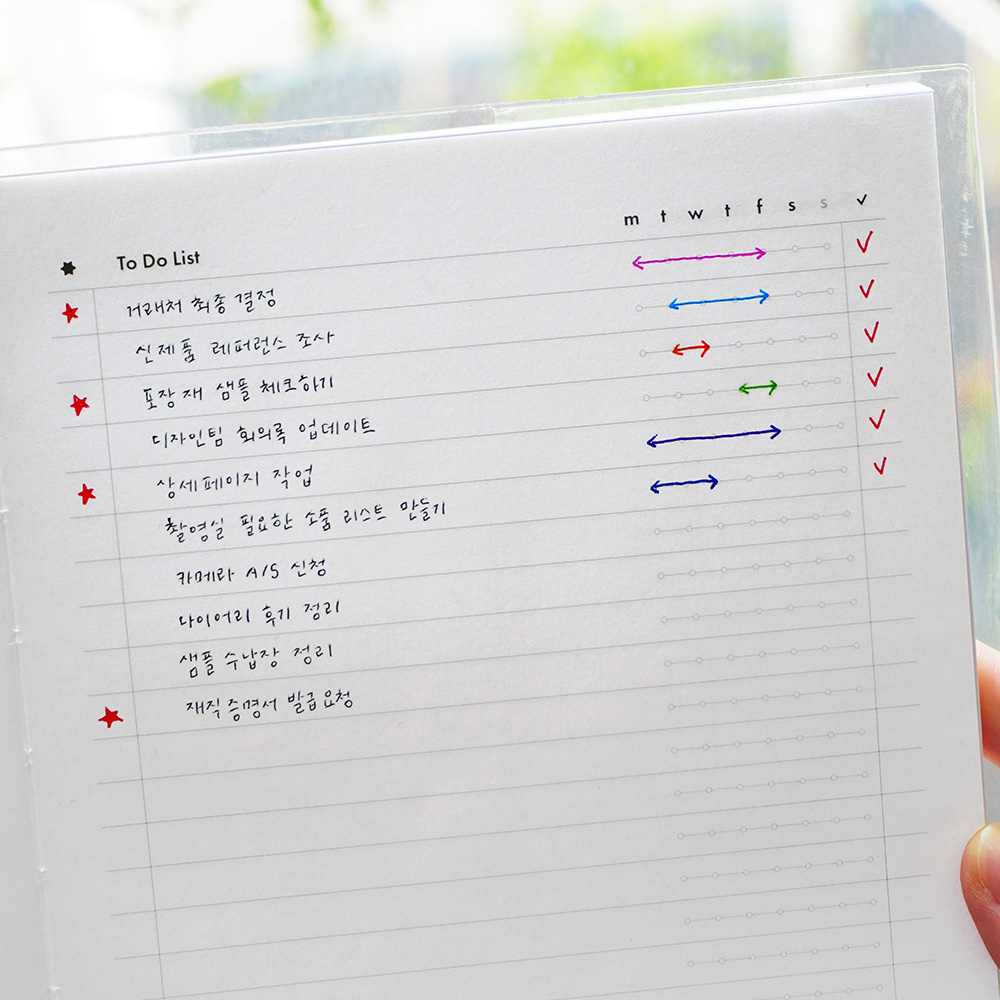 m t w t f s s ✓
★ To Do List
★ 거래처 최종 결정 ✓
신제품 레퍼런스 조사 ✓
★ 포장재 샘플 체크하기 ✓
디자인팀 회의록 업데이트 ✓
★ 상세페이지 작업 ✓
촬영실 필요한 소품 리스트 만들기 ✓
카메라 A/S 신청
다이어리 후기 정리
샘플 수납장 정리
★ 재직증명서 발급요청